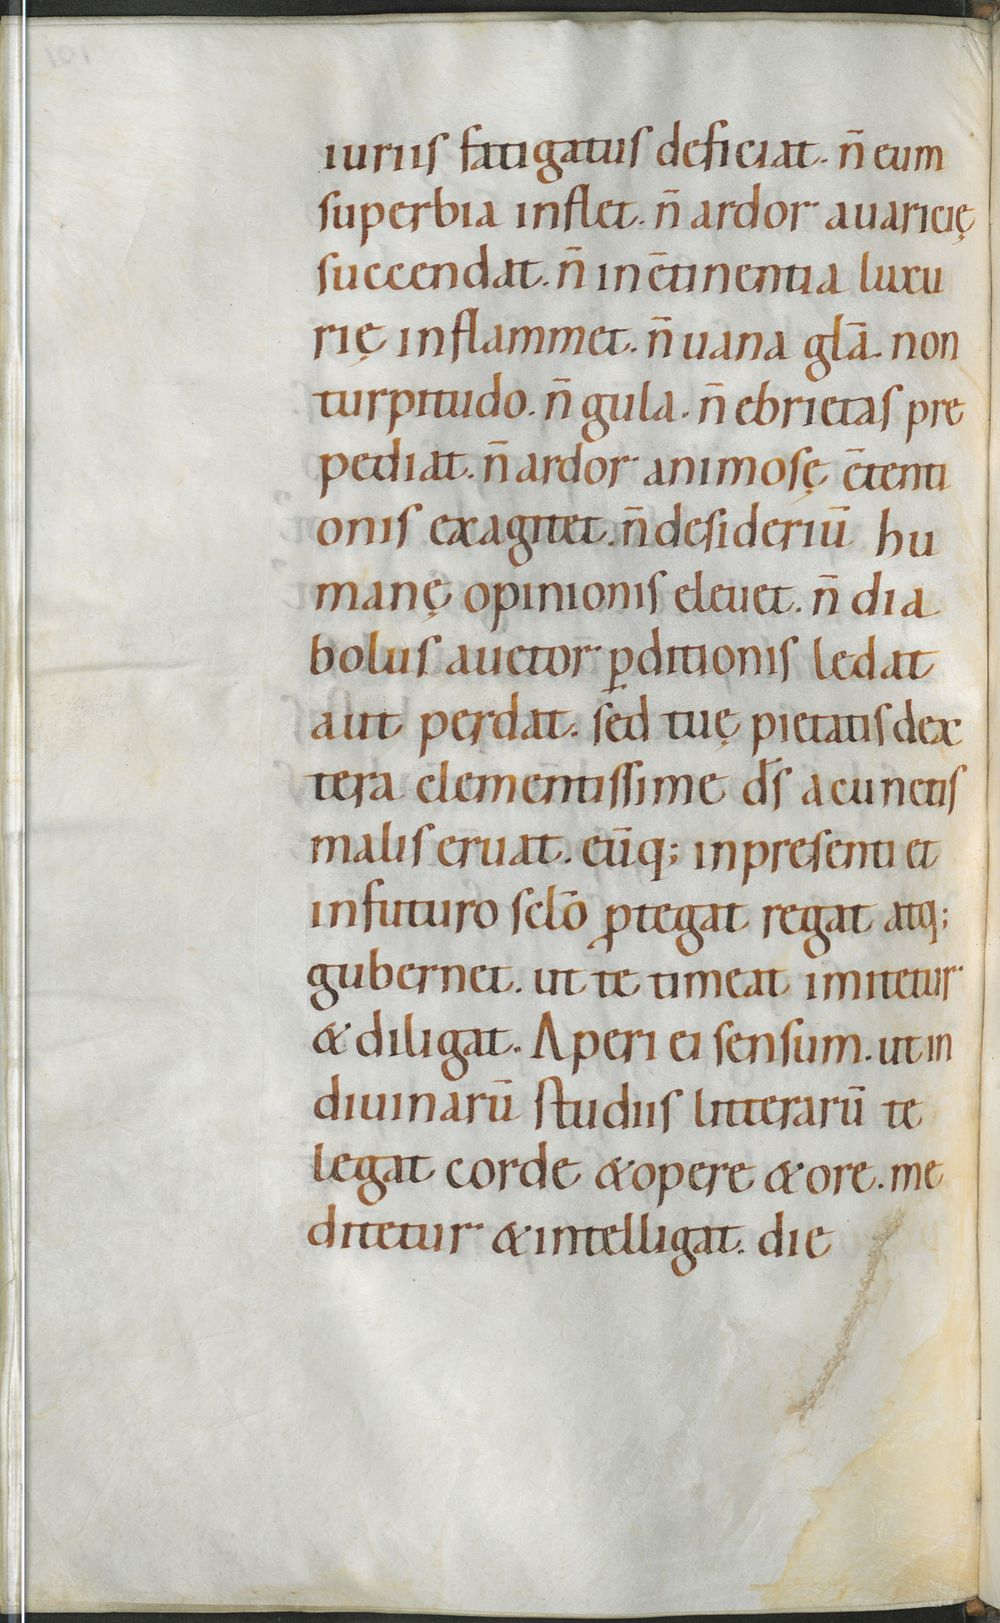 iuriis fatigatus deficiat. n̄ eum
superbia inflet. n̄ ardor auaricię
succendat. n̄ in c̄tinentia luxu
rię inflammet. n̄ uana gl̄a. non
turpitudo. n̄ gula. n̄ ebrietas pre
pediat. n̄ ardor animosę c̄tenti
onis exagitet. n̄ desideriū hu
manę opinionis eleuet. n̄ dia
bolus auctor p̱ditionis ledat
aut perdat. sed tuę pietatis dex
tera clementissime d̄s a cunctis
malis eruat. eūq; in presenti et
in futuro sc̄lo ꝓtegat regat atq;
gubernet. ut te timeat imitetur
& diligat. Aperi ei sensum. ut in
diuinarū studiis litterarū te
legat corde & opere & ore. me
ditetur & intelligat. die